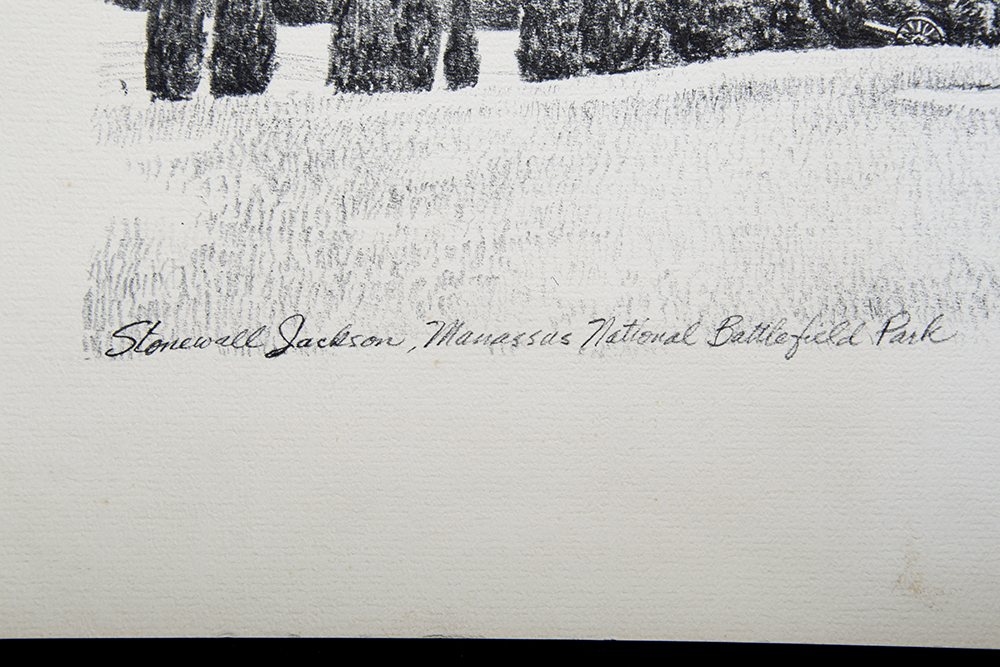 Stonewall Jackson, Manassas National Battlefield Park